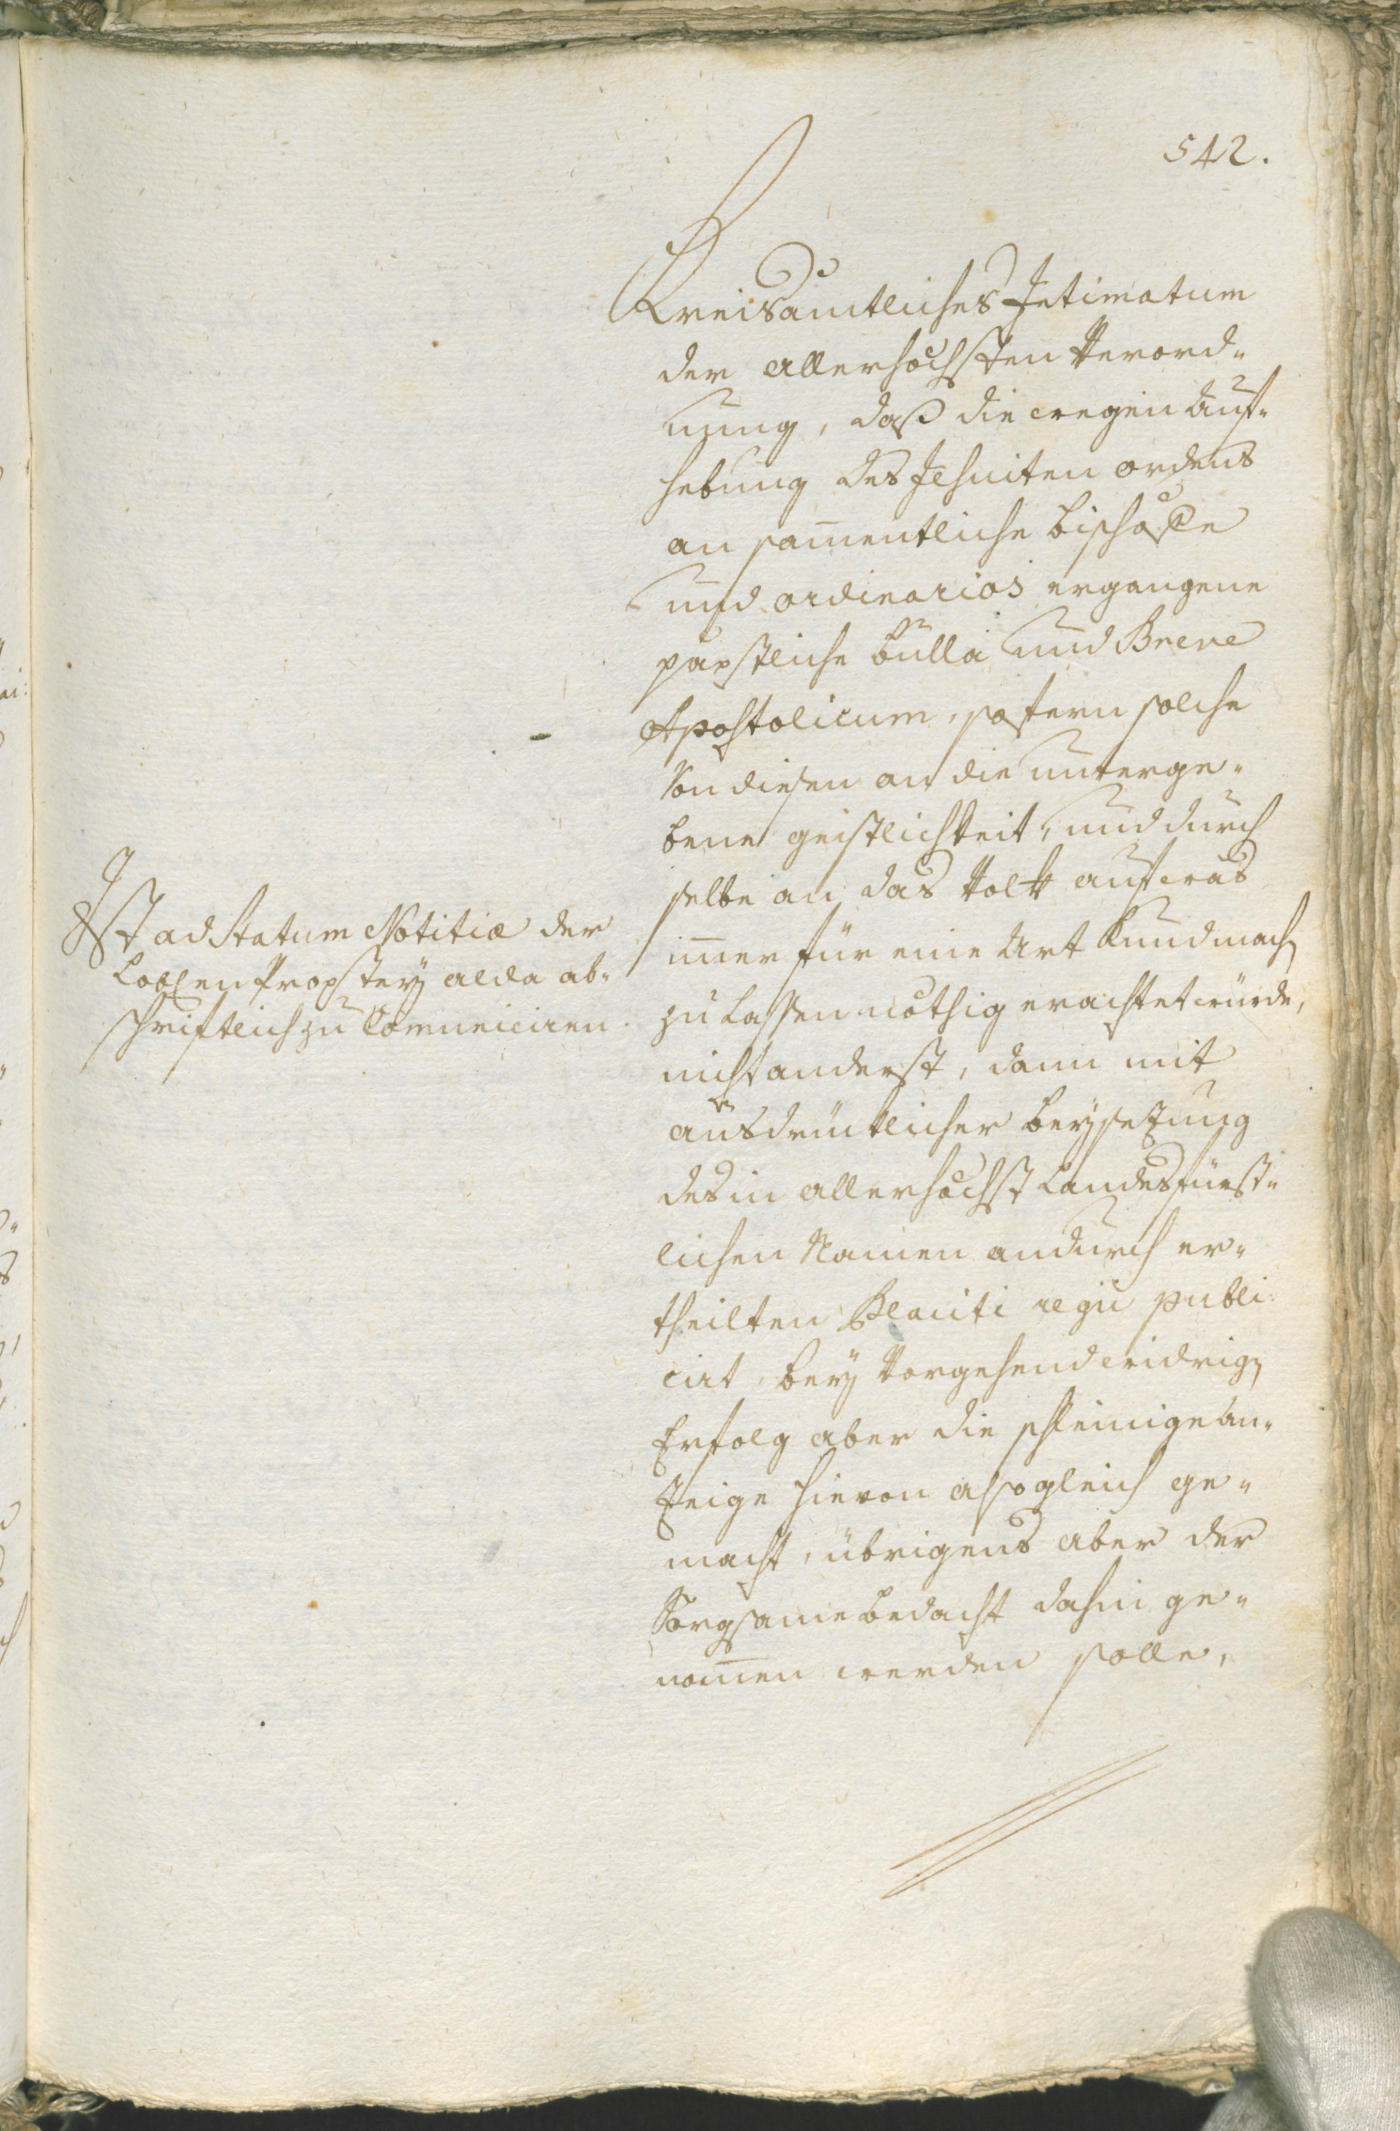 542.
Kreisämtliches Intimatum
der allerhöchsten Verord-
nung, daß die wegen Auf-
hebung des Jesuiten ordens
an sam̄entliche bischöffe
und ordinarios ergangene
päpstliche bulla und Breve
Apostolicum, sofern solche
von diesen an die unterge-
bene geistlichkeit, und durch
selbe an das Volk auf was
im̄er für eine Art kundmach
zu lassen nöthig erachtet würde,
nicht anderst, dann mit
ausdrücklicher beysezung
des in allerhöchst Landesfürst-
lichen Namen andurch er-
theilten Placiti regii publi
cirt, bey vorgehend widrig
Erfolg aber die schleinige an-
zeige hievon alsogleich ge-
macht, übrigens aber der
Sorgsame bedacht dahin ge-
nom̄en werden solle,
Ist ad statum Notitiæ der
Loblen Propstey alda ab-
schriftlich zu Comuniciren.